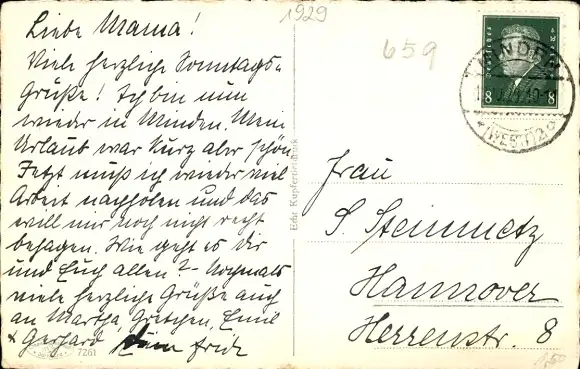 Liebe Mama!
Viele herzliche Sonntags=
Grüße! Ich bin nun
wieder in Minden. Mein
Urlaub war kurz aber schön
Jetzt muß ich wieder viel
Arbeit nachholen und das
will mir noch nicht recht
behagen. Wie geht es Dir
und Euch allen?- Nochmals
viele herzliche Grüße auch
an Martha, Gretchen, Emil
& Gerhard Dein Fritz
7261
1929
659
Echt Kupfertiefdruck
8 8
MINDEN
(WESTF) 2
Frau
S. Steinmetz
Hannover
Herrenstr. 8
1,50